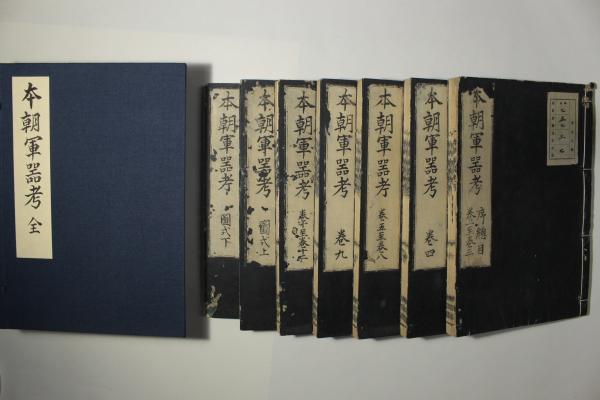 本朝軍器考 全
本朝軍器考 序總目
卷一至卷三
本朝軍器考 卷四
本朝軍器考 卷五至卷八
本朝軍器考 卷九
本朝軍器考 卷十至卷十二
本朝軍器考 圖式上
本朝軍器考 圖式下